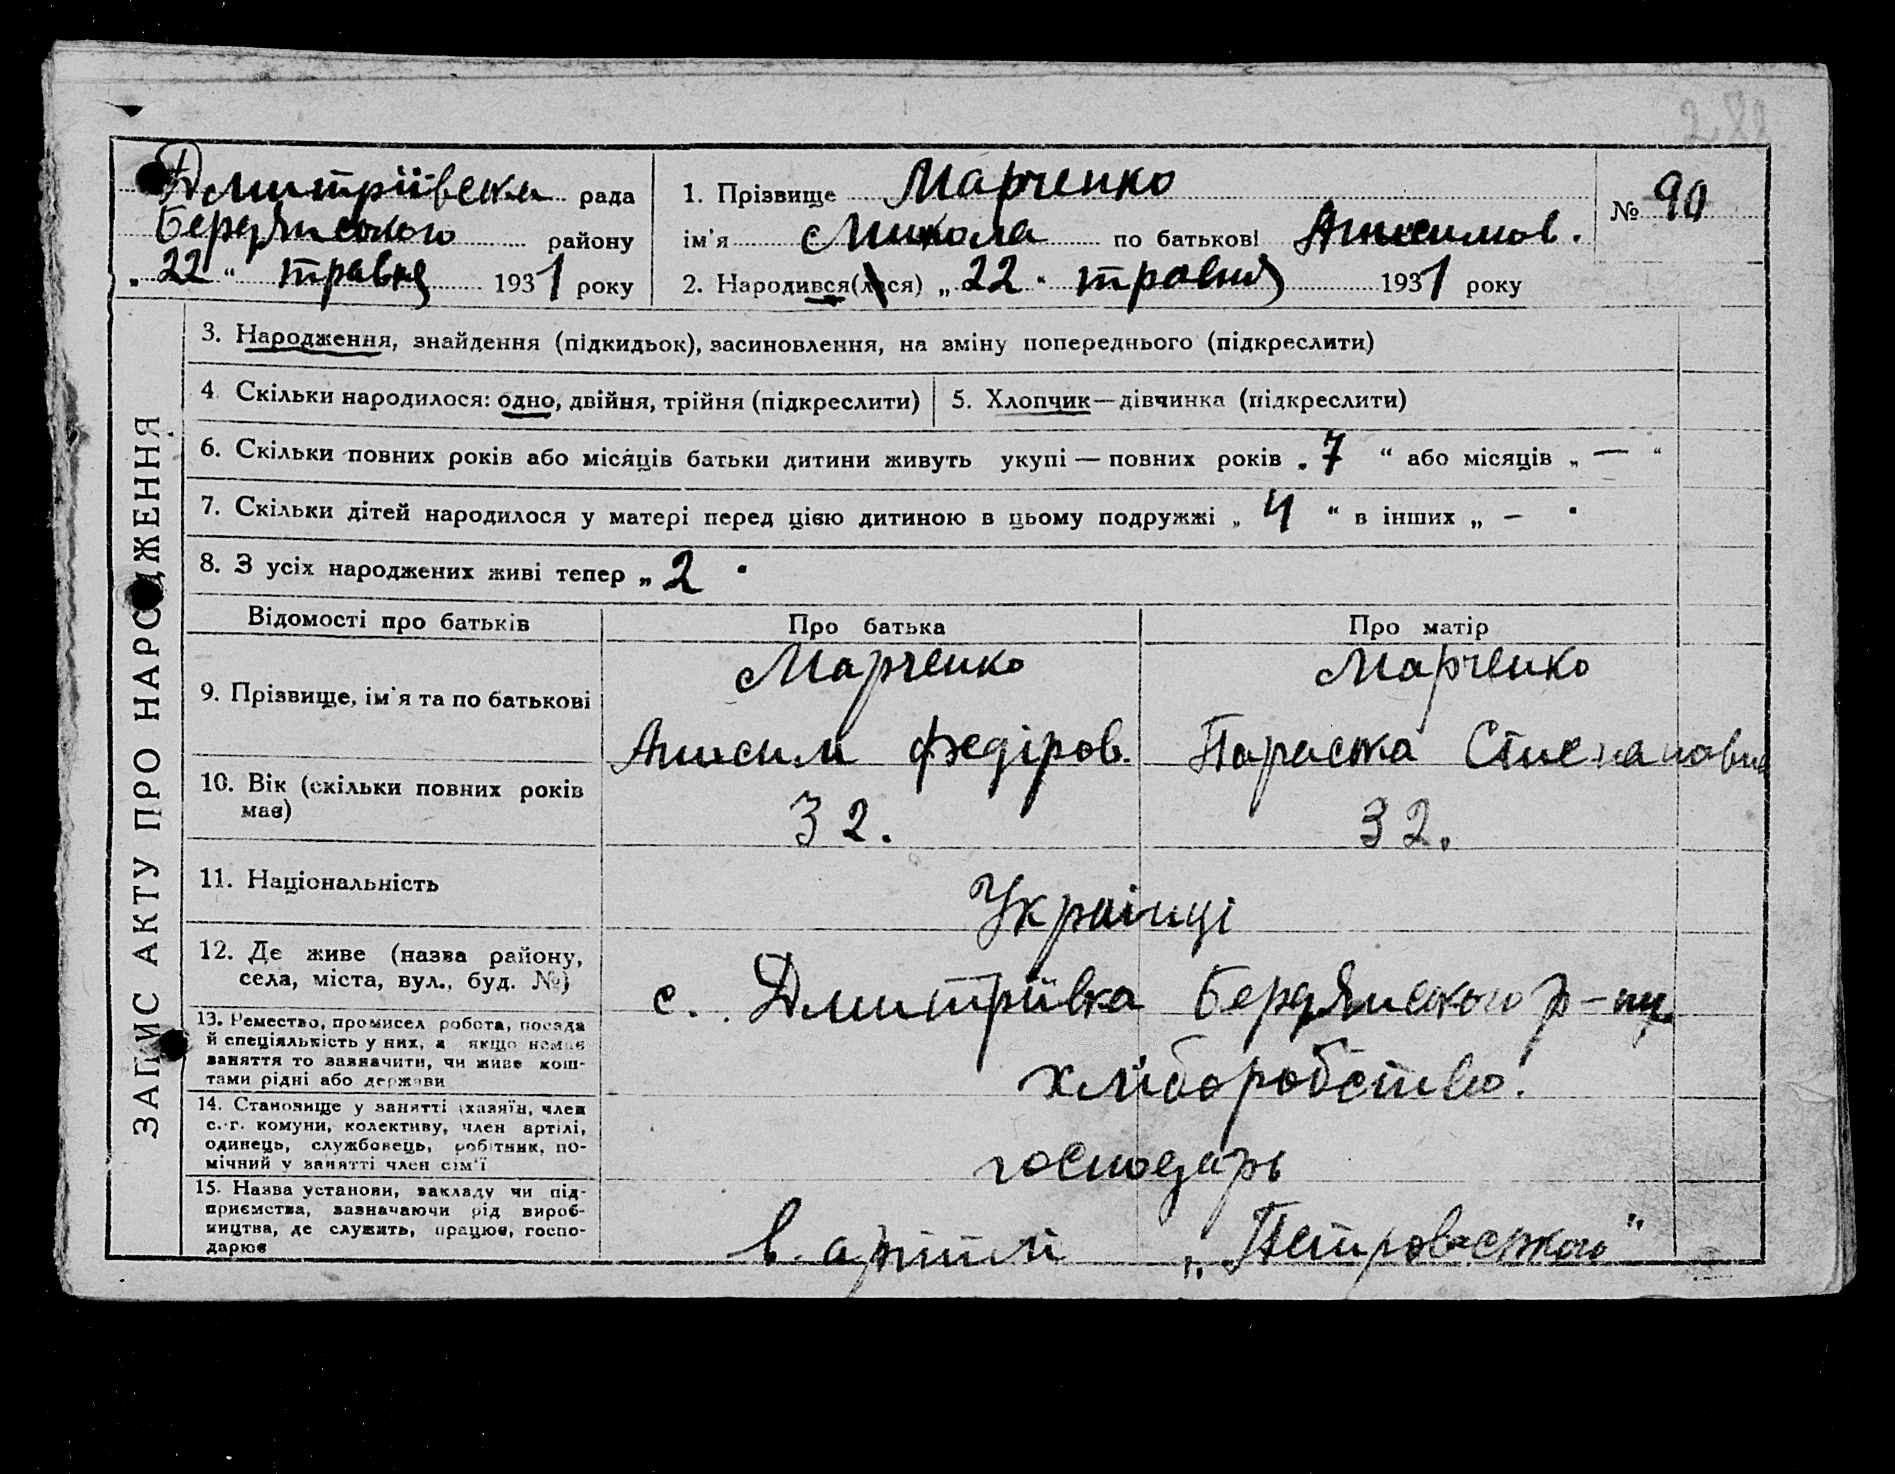 282
Дмитріївська рада
Бердянського району
„ 22 “ травня 1931 року
1. Прізвище Марченко
ім'я Микола по батькові Анисимов.
2. Народився(лася) „ 22 “ травня 1931 року
№ 90
ЗАПИС АКТУ ПРО НАРОДЖЕННЯ
3. Народження, знайдення (підкидьок), засиновлення, на зміну попереднього (підкреслити)
4. Скільки народилося: одно, двійня, трійня (підкреслити)
5. Хлопчик—дівчинка (підкреслити)
6. Скільки повних років або місяців батьки дитини живуть укупі — повних років „ 7 “ або місяців „ — “
7. Скільки дітей народилося у матері перед цією дитиною в цьому подружжі „ 4 “ в інших „ — “
8. З усіх народжених живі тепер „ 2 “
Відомості про батьків Про батька Про матір
9. Прізвище, ім'я та по батькові
Марченко
Анисим Федіров.
Марченко
Параска Степановна
10. Вік (скільки повних років
має)
32. 32.
11. Національність
Українці
12. Де живе (назва району,
села, міста, вул., буд. №)
с. Дмитріївка Бердянського р-ну
13. Ремество, промисел робота, посада
й спеціяльність у них, а якщо немає
заняття то зазначити, чи живе кош-
тами рідні або держави
хліборобство.
14. Становище у занятті (хазяїн, член
с.-г. комуни, колективу, член артілі,
одинець, службовець, робітник, по-
мічний у занятті член сім'ї
господарь
15. Назва установи, закладу чи під-
приємства, зазначаючи рід вироб-
ництва, де служить, працює, госпо-
дарює
в артілі „Петровського"